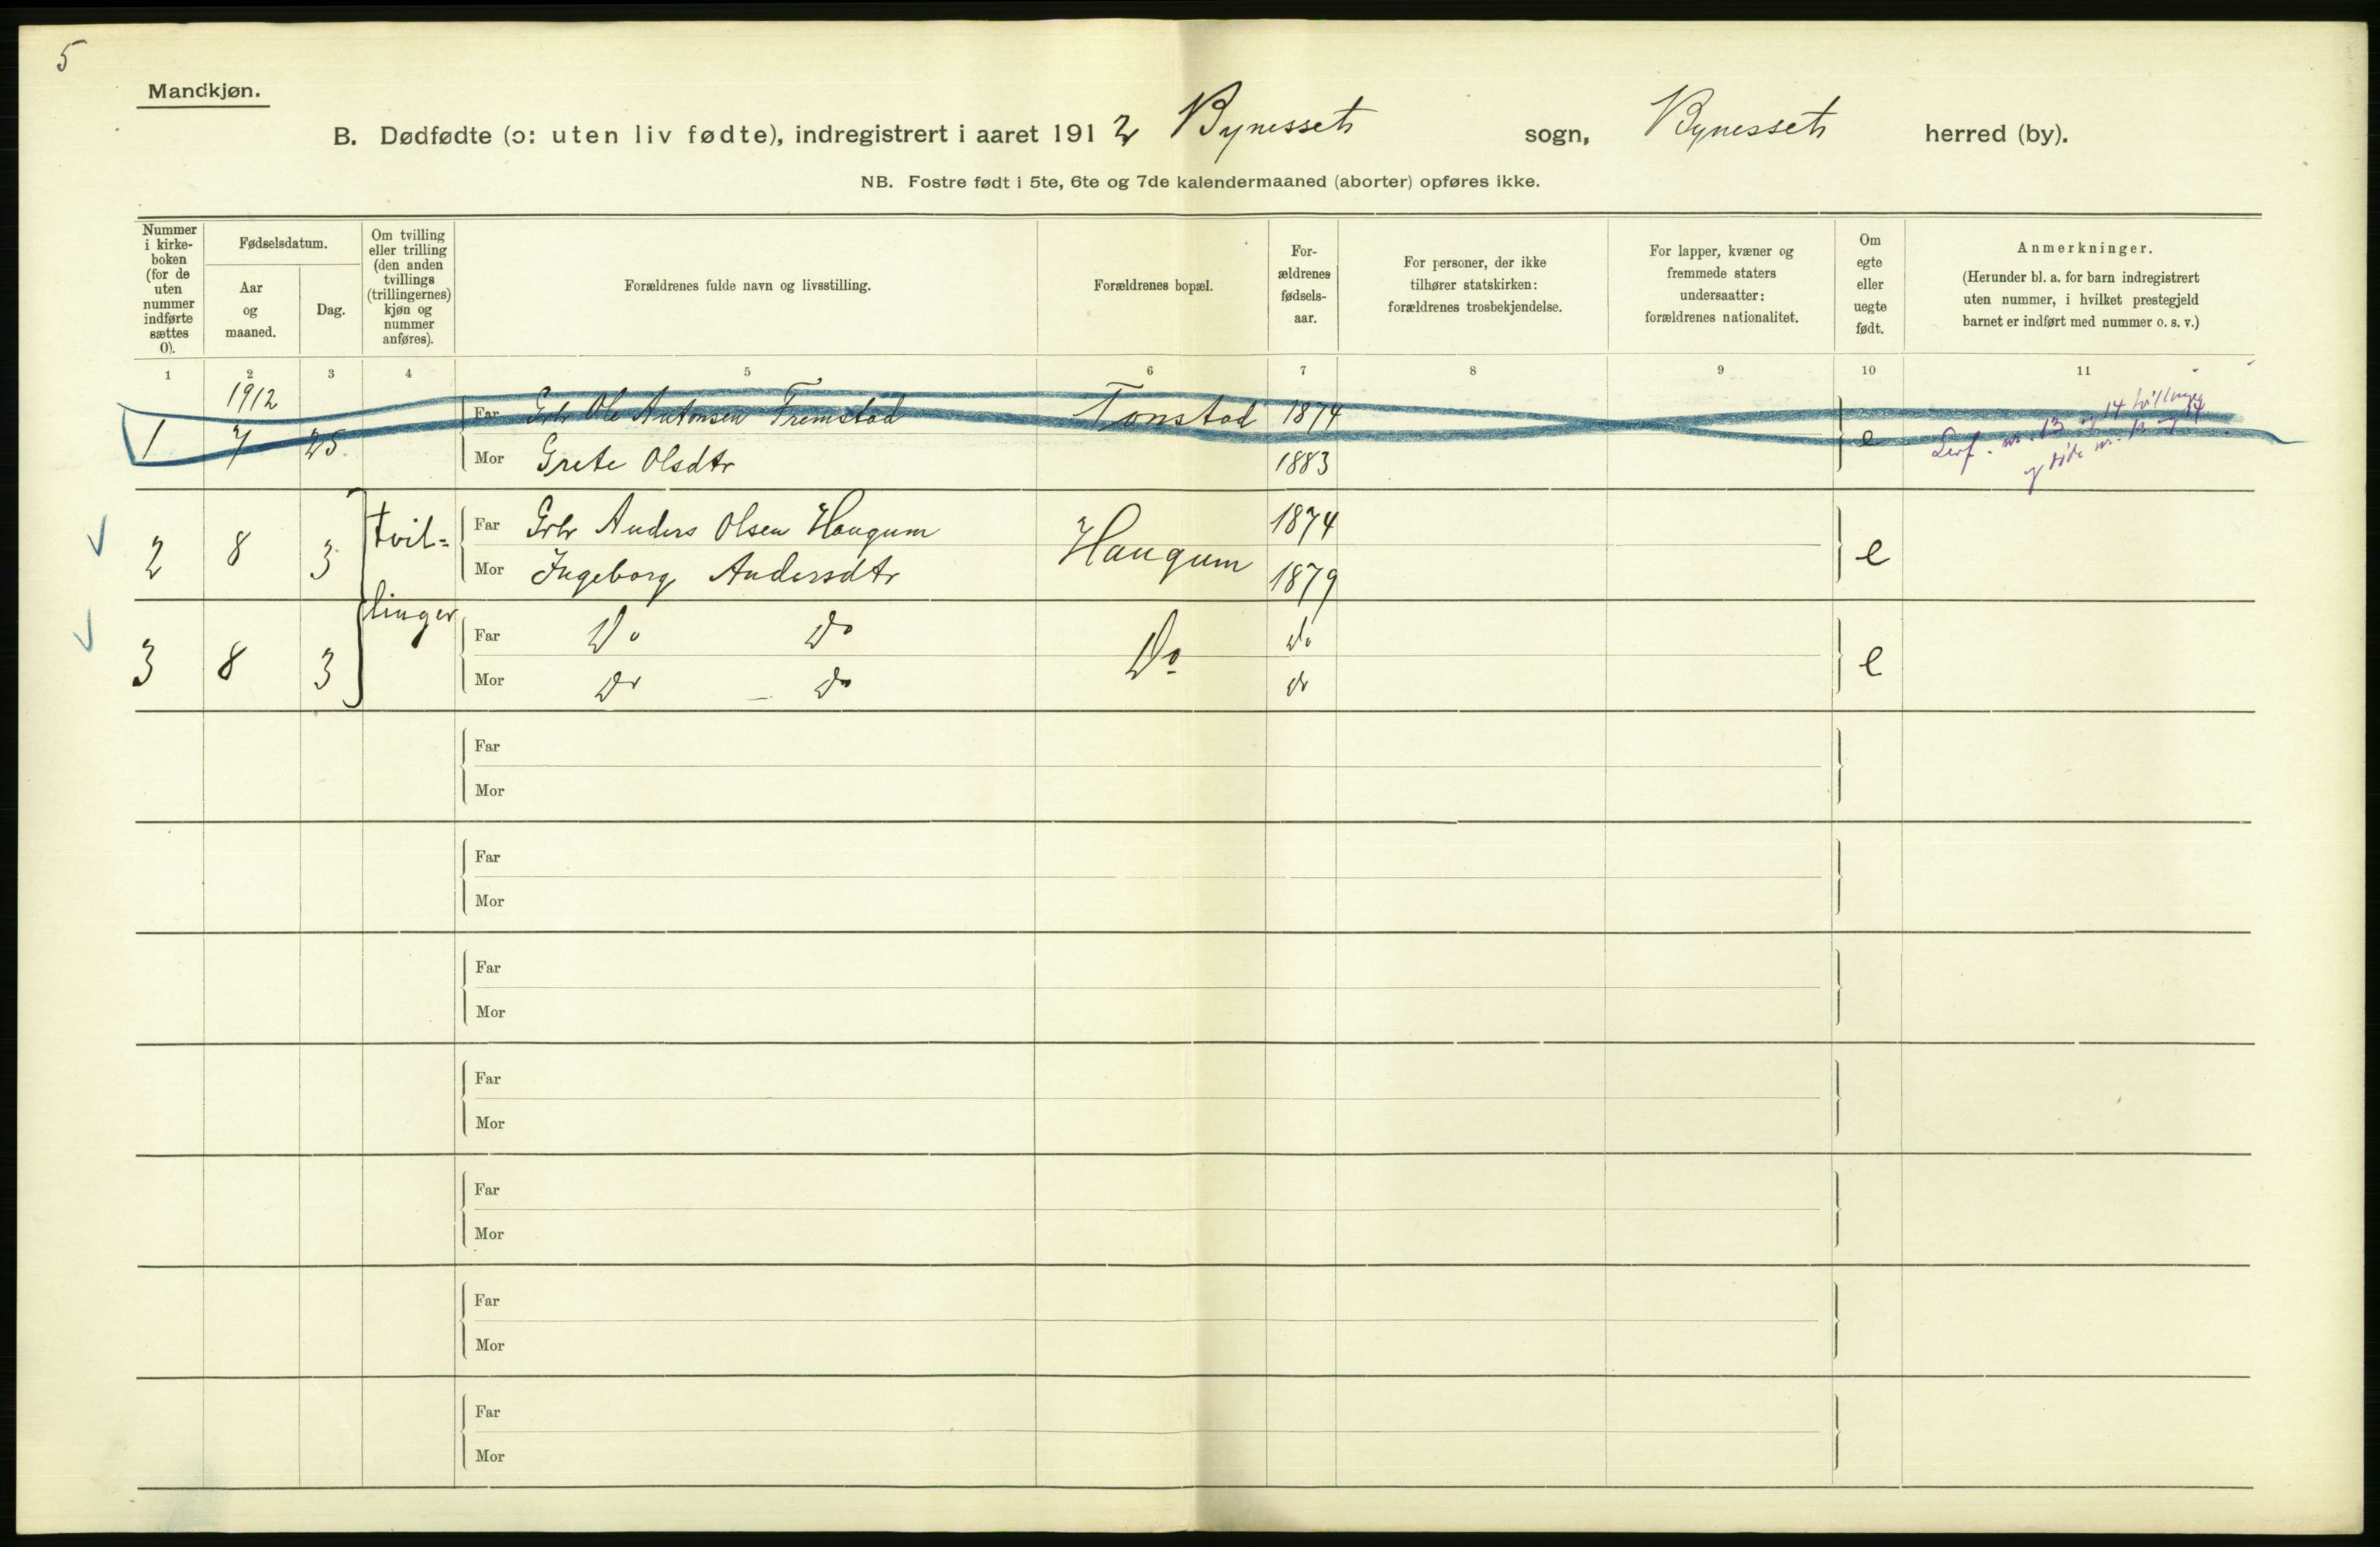 5
Mandkjøn.
B. Dødfødte (ɔ: uten liv fødte), indregistrert i aaret 1912 Bynessets sogn, Bynessets herred (by).
NB. Fostre født i 5te, 6te og 7de kalendermaaned (aborter) opføres ikke.
Nummer i kirke-boken (for de uten nummer indførte sættes 0).
Fødselsdatum.
Aar og maaned.
Dag.
Om tvilling eller trilling (den anden tvillings (trillingernes) kjøn og nummer anføres).
Forældrenes fulde navn og livsstilling.
Forældrenes bopæl.
For-ældrenes fødsels-aar.
For personer, der ikke tilhører statskirken: forældrenes trosbekjendelse.
For lapper, kvæner og fremmede staters undersaatter: forældrenes nationalitet.
Om egte eller uegte født.
Anmerkninger.
(Herunder bl. a. for barn indregistrert uten nummer, i hvilket prestegjeld barnet er indført med nummer o. s. v.)
1 2 3 4 5 6 7 8 9 10 11
1912
1 7 25 Far Grbr Ole Antonsen Fremstad Tonstad 1874 e nr. 13 og 14 tvillinger
Mor Grete Olsdtr 1883 og døde nr. 13 og 14
2 8 3 tvil= Far Grbr Anders Olsen Haugum Haugum 1874 e
Mor Ingeborg Andersdtr 1879
linger
3 8 3 Far Do Do Do Do e
Mor Do — Do Do
Far
Mor
Far
Mor
Far
Mor
Far
Mor
Far
Mor
Far
Mor
Far
Mor